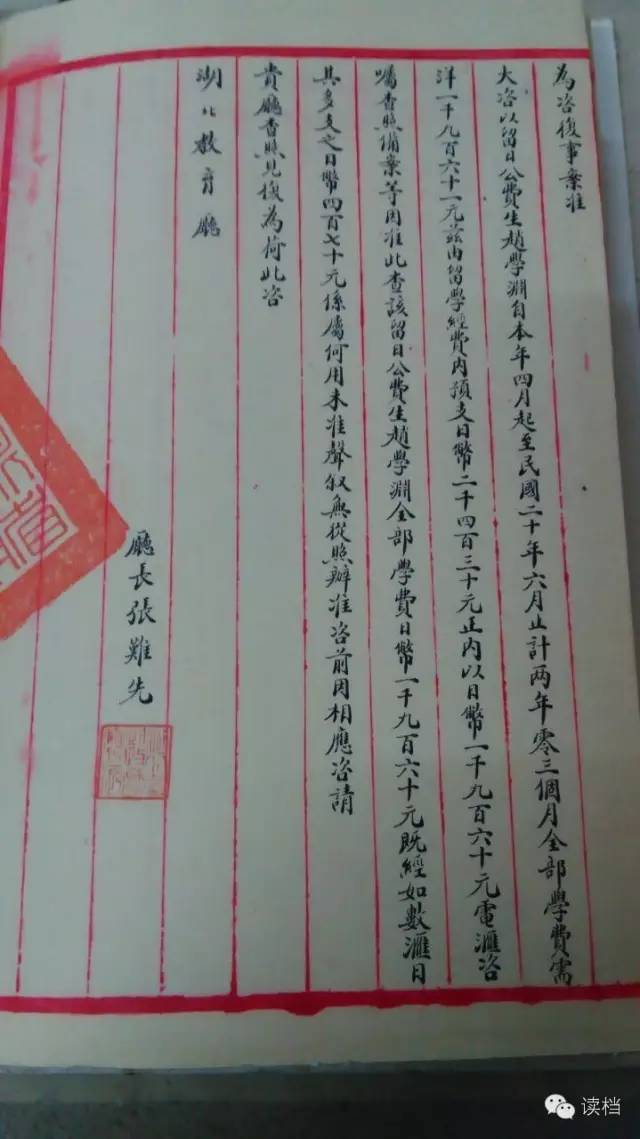 為咨復事案准
大咨以留日公費生趙學淵自本年四月起至民國二十年六月止計两年零三個月全部學費需
洋一千九百六十一元茲由留學經費內預支日幣二千四百三十元正內以日幣一千九百六十元電滙咨
囑查照備案等因准此查該留日公費生趙學淵全部學費日幣一千九百六十元既經如數滙日
其多支之日幣四百七十元係屬何用未准聲叙無從照辦准咨前因相應咨請
貴廳查照見復為荷此咨
湖北教育廳
廳長張難先
读档